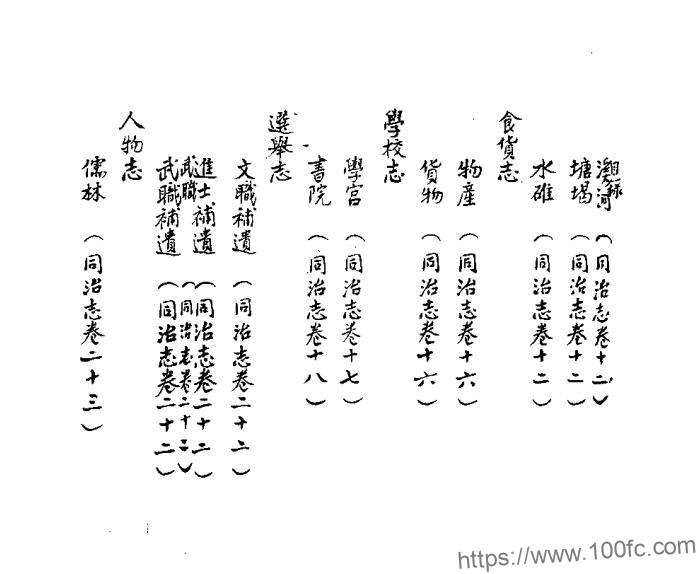 河（同治志卷十二）
塘堨（同治志卷十二）
水碓（同治志卷十二）
食貨志
物產（同治志卷十六）
貨物（同治志卷十六）
學校志
學宮（同治志卷十七）
書院（同治志卷十八）
選舉志
文職補遺（同治志卷二十二）
進士補遺（同治志卷二十二）
武職（同治志卷二十二）
武職補遺（同治志卷二十二）
人物志
儒林（同治志卷二十三）
https://www.100fc.com